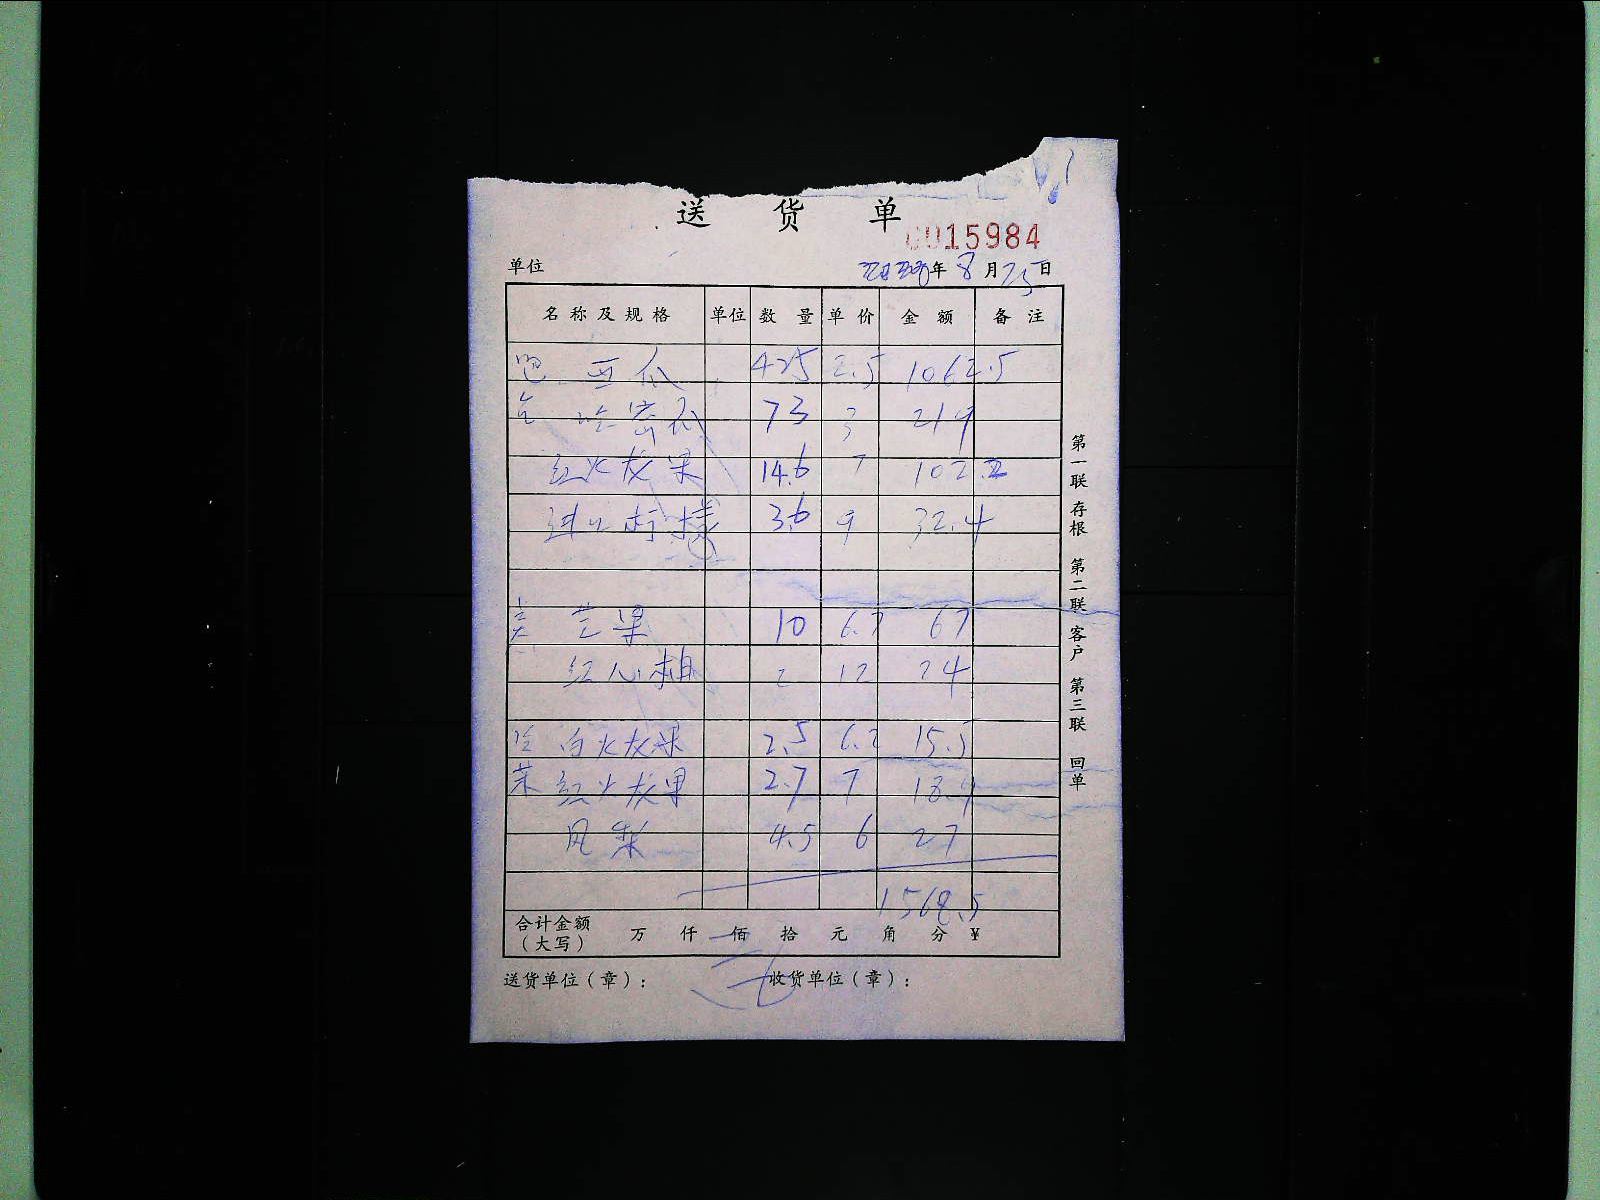 送货单
0015984
单位 年 8 月 25 日
名称及规格 单位 数量 单价 金额 备注
西瓜 425 2.5 1062.5
哈密瓜 73 3 219
红火龙果 14.6 7 102.2
进口柠檬 3.6 9 32.4
芒果 10 6.7 67
红心柚 2 12 24
白火龙果 2.5 6.2 15.5
红火龙果 2.7 7 18.9
凤梨 4.5 6 27
1568.5
合计金额（大写） 万 仟 佰 拾 元 角 分 ¥
送货单位（章）： 收货单位（章）：
第一联 存根 第二联 客户 第三联 回单